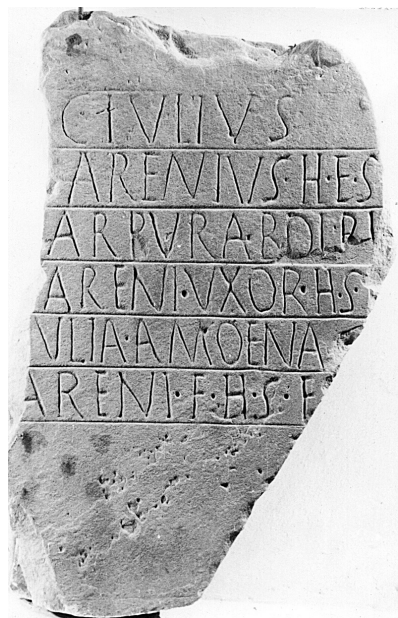 C IVLIVS
ARENIVS·H·E·S
ARPVRA
ARENI·VXOR·H·S·
VLIA·AMOENA
ARENI·F·H·S·